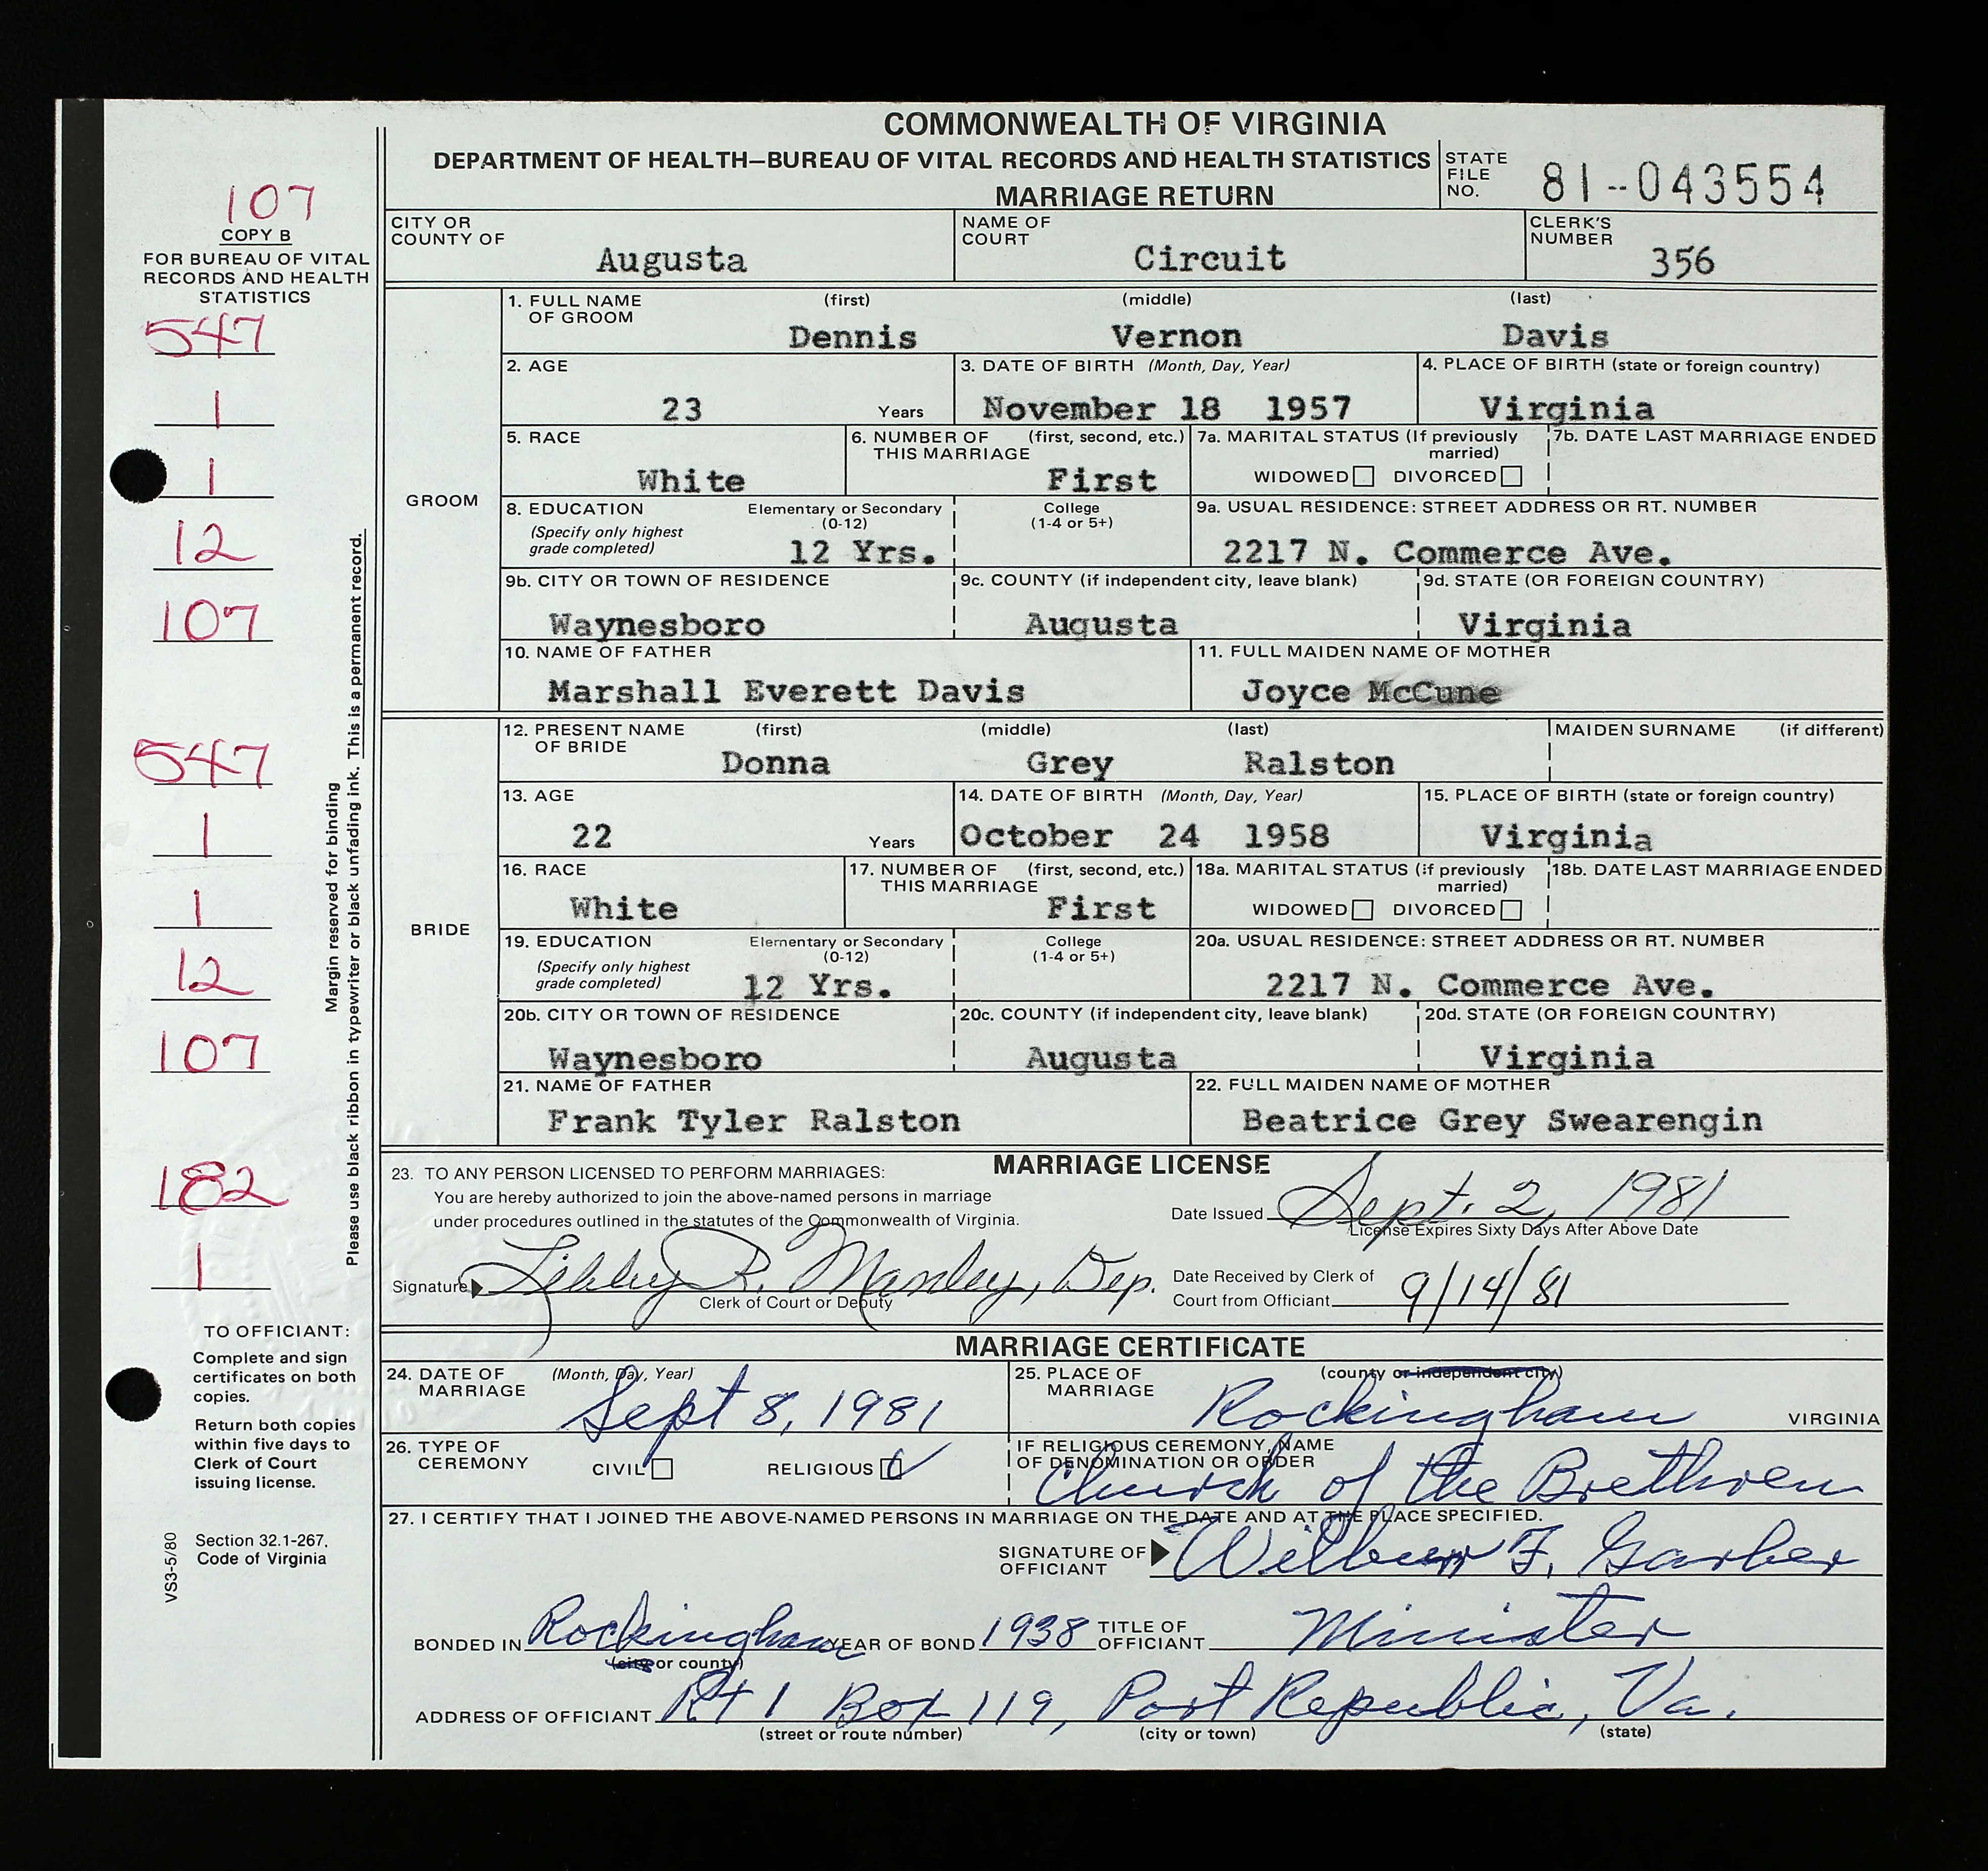 COMMONWEALTH OF VIRGINIA
DEPARTMENT OF HEALTH—BUREAU OF VITAL RECORDS AND HEALTH STATISTICS
MARRIAGE RETURN
STATE FILE NO. 81--043554
107
COPY B
FOR BUREAU OF VITAL
RECORDS AND HEALTH
STATISTICS
547
1
1
12
107
547
1
1
12
107
182
1
Margin reserved for binding
Please use black ribbon in typewriter or black unfading ink. This is a permanent record.
TO OFFICIANT:
Complete and sign
certificates on both
copies.
Return both copies
within five days to
Clerk of Court
issuing license.
Section 32.1-267,
Code of Virginia
VS3-5/80
CITY OR COUNTY OF Augusta
NAME OF COURT Circuit
CLERK'S NUMBER 356
GROOM
1. FULL NAME OF GROOM (first) (middle) (last)
Dennis Vernon Davis
2. AGE 23 Years
3. DATE OF BIRTH (Month, Day, Year) November 18 1957
4. PLACE OF BIRTH (state or foreign country) Virginia
5. RACE White
6. NUMBER OF THIS MARRIAGE (first, second, etc.) First
7a. MARITAL STATUS (If previously married) WIDOWED DIVORCED
7b. DATE LAST MARRIAGE ENDED
8. EDUCATION (Specify only highest grade completed) Elementary or Secondary (0-12) 12 Yrs.
College (1-4 or 5+)
9a. USUAL RESIDENCE: STREET ADDRESS OR RT. NUMBER 2217 N. Commerce Ave.
9b. CITY OR TOWN OF RESIDENCE Waynesboro
9c. COUNTY (if independent city, leave blank) Augusta
9d. STATE (OR FOREIGN COUNTRY) Virginia
10. NAME OF FATHER Marshall Everett Davis
11. FULL MAIDEN NAME OF MOTHER Joyce McCune
BRIDE
12. PRESENT NAME OF BRIDE (first) (middle) (last) MAIDEN SURNAME (if different)
Donna Grey Ralston
13. AGE 22 Years
14. DATE OF BIRTH (Month, Day, Year) October 24 1958
15. PLACE OF BIRTH (state or foreign country) Virginia
16. RACE White
17. NUMBER OF THIS MARRIAGE (first, second, etc.) First
18a. MARITAL STATUS (if previously married) WIDOWED DIVORCED
18b. DATE LAST MARRIAGE ENDED
19. EDUCATION (Specify only highest grade completed) Elementary or Secondary (0-12) 12 Yrs.
College (1-4 or 5+)
20a. USUAL RESIDENCE: STREET ADDRESS OR RT. NUMBER 2217 N. Commerce Ave.
20b. CITY OR TOWN OF RESIDENCE Waynesboro
20c. COUNTY (if independent city, leave blank) Augusta
20d. STATE (OR FOREIGN COUNTRY) Virginia
21. NAME OF FATHER Frank Tyler Ralston
22. FULL MAIDEN NAME OF MOTHER Beatrice Grey Swearengin
MARRIAGE LICENSE
23. TO ANY PERSON LICENSED TO PERFORM MARRIAGES:
You are hereby authorized to join the above-named persons in marriage
under procedures outlined in the statutes of the Commonwealth of Virginia.
Date Issued Sept. 2, 1981
License Expires Sixty Days After Above Date
Signature Libby R. Manley, Dep.
Clerk of Court or Deputy
Date Received by Clerk of Court from Officiant 9/14/81
MARRIAGE CERTIFICATE
24. DATE OF MARRIAGE (Month, Day, Year) Sept 8, 1981
25. PLACE OF MARRIAGE (county or independent city) Rockingham VIRGINIA
26. TYPE OF CEREMONY CIVIL RELIGIOUS ✓
IF RELIGIOUS CEREMONY, NAME OF DENOMINATION OR ORDER Church of the Brethren
27. I CERTIFY THAT I JOINED THE ABOVE-NAMED PERSONS IN MARRIAGE ON THE DATE AND AT THE PLACE SPECIFIED.
SIGNATURE OF OFFICIANT Wilbur F. Garber
BONDED IN Rockingham (city or county) YEAR OF BOND 1938 TITLE OF OFFICIANT Minister
ADDRESS OF OFFICIANT Rt 1 Box 119, Port Republic, Va.
(street or route number) (city or town) (state)